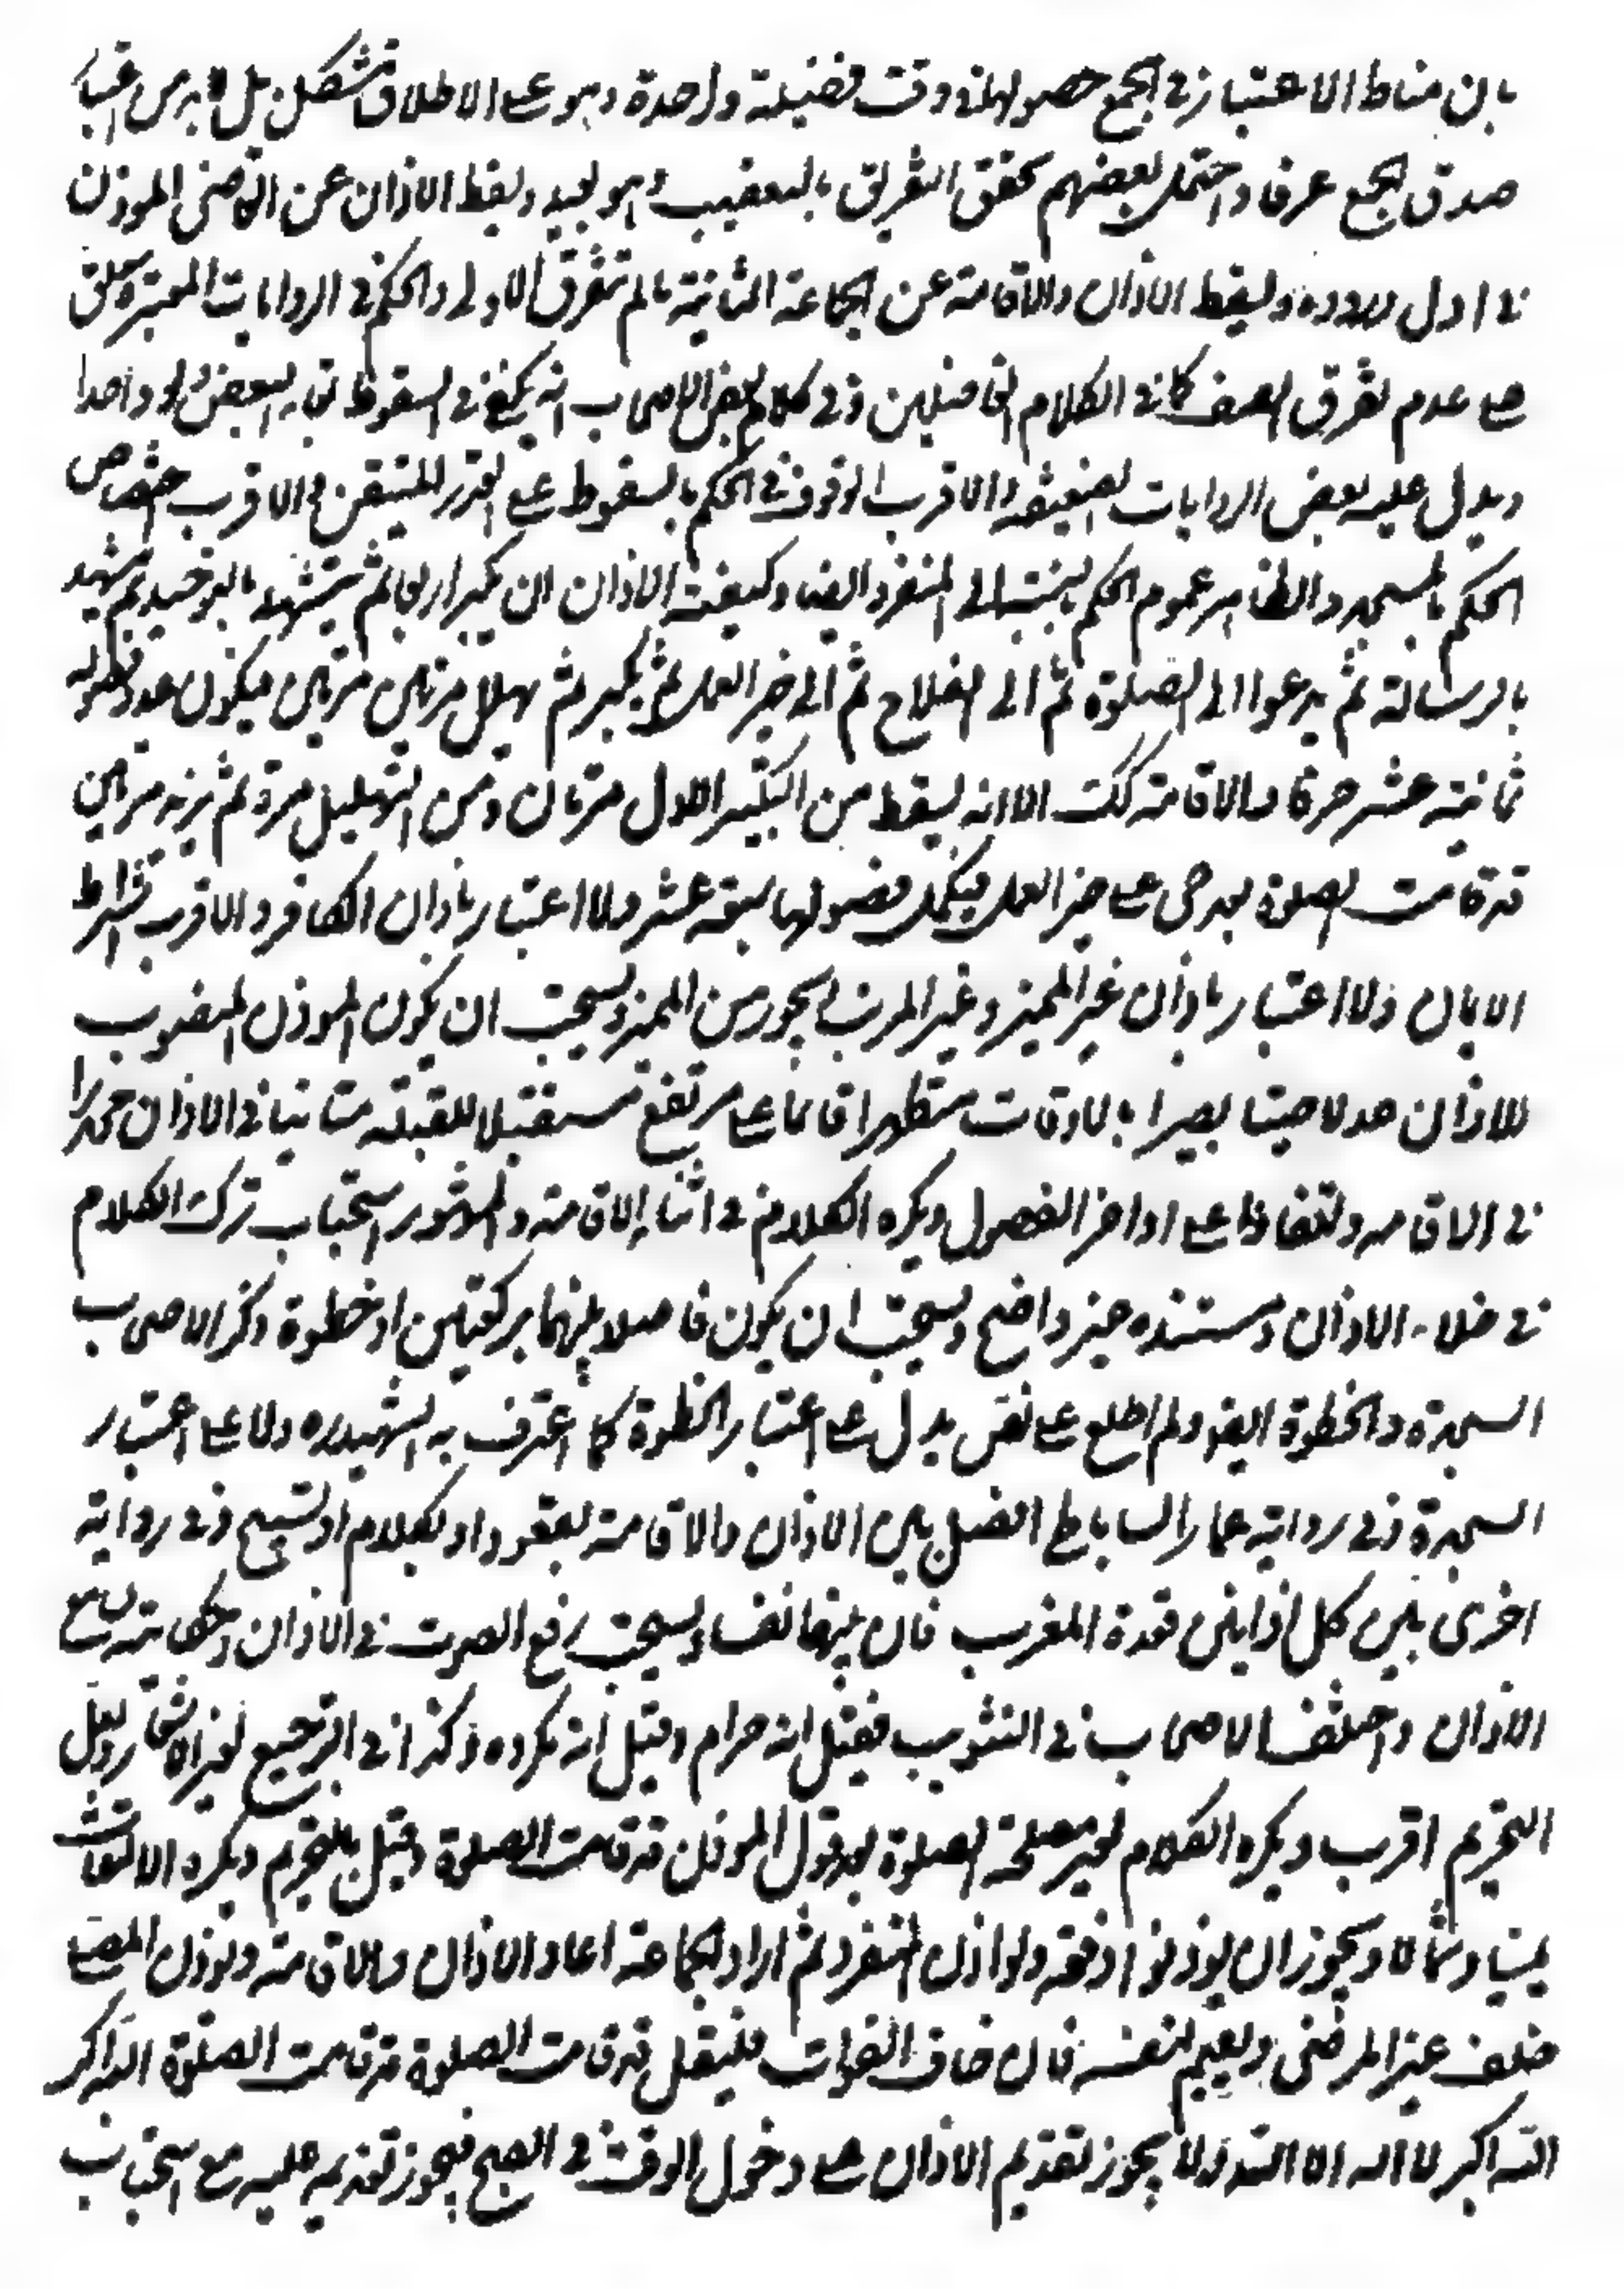 بان مناط الاعتبار في الجمع حصولهما في وقت فضيلة واحدة وهو على الاطلاق مشكل بل لا بد من اعتبار
صدق الجمع عرفا واحتمل بعضهم تحقق التفريق بالتعقيب وهو بعيد ويسقط الاذان عن القاضي المؤذن
في اول وروده ويسقط الاذان والاقامة عن الجماعة الثانية ما لم تتفرق الاولى والحكم في الروايات المعتبرة معلق
على عدم تفرق الصف كما في الكلام الفاضلين وفي كلام بعض الاصحاب انه يكفي في السقوط بقاء البعض ولو واحدا
ويدل عليه بعض الروايات الضعيفة والاقرب الوقوف في الحكم بالسقوط على القدر المتيقن والاقرب اختصاص
الحكم بالمسجد والظاهر عموم الحكم بالنسبة الى المنفرد ايضا وكيفية الاذان ان يكبر اربعا ثم يتشهد بالتوحيد ثم يشهد
بالرسالة ثم يدعوا الى الصلوة ثم الى الفلاح ثم الى خير العمل ثم يكبر ثم يهلل مرتين مرتين فيكون عدد فصوله
ثمانية عشر حرفا والاقامة كك الا انه يسقط من التكبير الاول مرتان ومن التهليل مرة ثم يزيد مرتين
قد قامت الصلوة بعد حي على خير العمل فيكمل فصولها سبعة عشر ولا اعتبار باذان الكافر والاقرب اشتراط
الايمان ولا اعتبار باذان غير المميز وغير المرتب يجوز من المميز ويستحب ان يكون المؤذن المنصوب
للاذان عدلا صيتا بصيرا بالاوقات متطهرا قائما على مرتفع مستقبلا للقبلة متانيا في الاذان محدرا
في الاقامة ولتفاوتا على اواخر الفصول ويكره الكلام في اثناء الاقامة والمشهور استحباب ترك الكلام
في خلال الاذان ومستنده غير واضح ويستحب ان يكون فاصلا بينهما بركعتين او خطوة وذكر الاصحاب
السجدة والخطوة ايضا ولم اطلع على نص يدل على اعتبار الخطوة كما اعترف به الشهيد ره ولا على اعتبار
السجدة وفي رواية عمار الساباطي الفصل بين الاذان والاقامة بقعود او بكلام او تسبيح وفي رواية
اخرى بين كل اذانين قعدة المغرب فان بينهما نفسا ويستحب رفع الصوت في الاذان وحكايته لسامع
الاذان واختلف الاصحاب في التثويب فقيل انه حرام وقيل انه مكروه وكذا في الترجيع لغير الاشعار ولعل
التحريم اقرب ويكره الكلام لغير مصلحة الصلوة بعد قول المؤذن قد قامت الصلوة وقيل بالتحريم ويكره الالتفات
يمينا وشمالا ويجوز ان يؤذنوا دفعة ولو اذن المنفرد ثم اراد الجماعة اعاد الاذان والاقامة ويؤذن المصلي
خلف غير المرضي ويقيم لنفسه فان خاف الفوات فليقل قد قامت الصلوة قد قامت الصلوة الله اكبر
الله اكبر لا اله الا الله ولا يجوز تقديم الاذان على دخول الوقت في الصبح فيجوز تقديمه عليه مع استحباب